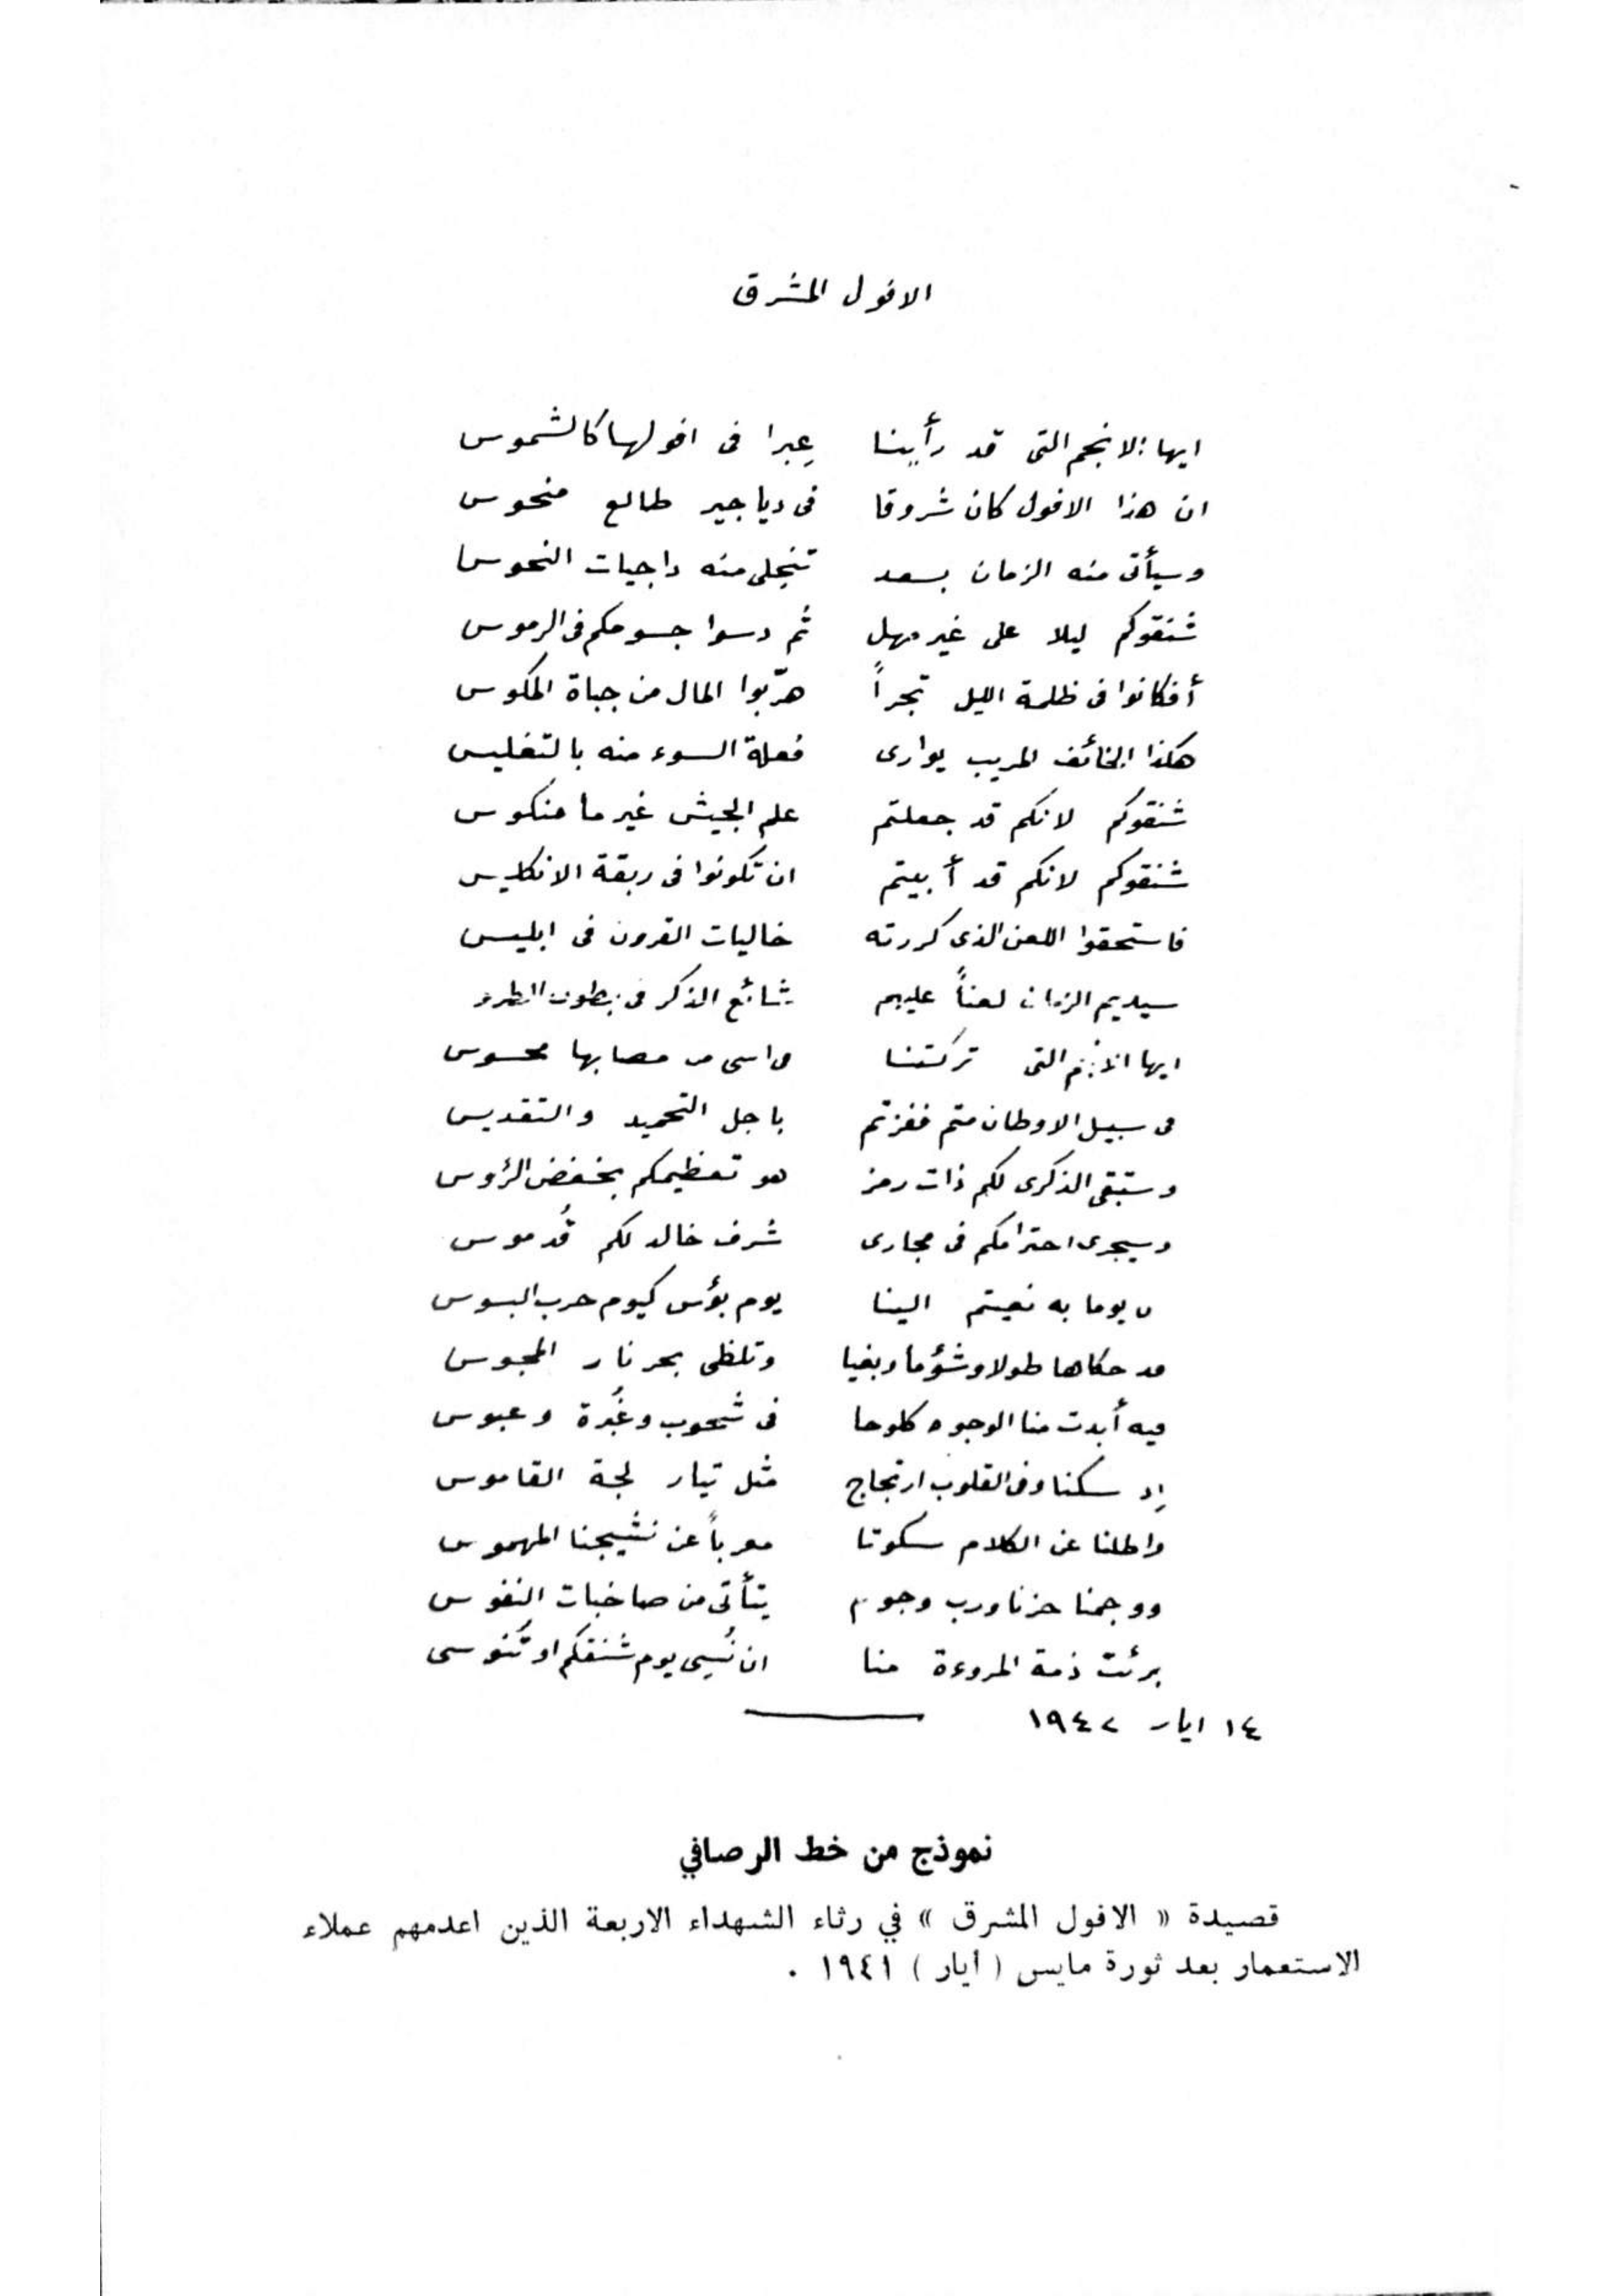 الافول المشرق
ايها الانجم التى قد رأينا عِبرا فى افولها كالشموس
ان هذا الافول كان شروقا فى دياجير طالع منحوس
وسيأتى منه الزمان بسعد تنجلى منه داجيات النحوس
شنقوكم ليلا على غير مهل ثم دسوا جسومكم فى الرموس
أفكانوا فى ظلمة الليل تجراً هرّبوا المال من جباة المكوس
هكذا الخائف المريب يوارى فعلة السوء منه بالتغليس
شنقوكم لانكم قد جعلتم علم الجيش غير ما منكوس
شنقوكم لانكم قد أبيتم ان تكونوا فى ربقة الانكليس
فاستحقوا اللعن الذى كررته خاليات القرون فى ابليس
سيديم الزمان لعناً عليهم شائع الذكر فى بطون
ايها الانجم التى تركتنا فى اسى من مصابها محسوس
فى سبيل الاوطان متم ففزتم باجل التحميد والتقديس
وستبقى الذكرى لكم ذات رمز هو تعظيمكم بخفض الرؤوس
وسيجرى احترامكم فى مجارى شرف خالد لكم قُدموس
يوما به نعيتم الينا يوم بؤس كيوم حرب البسوس
قد حكاها طولا وشؤما وبغيا وتلظى بحر نار المجوس
فيه أبدت منا الوجوه كلوحا فى شحوب وغُبرة وعبوس
إذ سكنا وفى القلوب ارتجاج مثل تيار لجة القاموس
واطلنا عن الكلام سكوتا معرباً عن نشيجنا المهموس
ووجمنا حزنا ورب وجوم يتأتى من صاخبات النفوس
برئت ذمة المروءة منا ان نُسِى يوم شنقكم او تُنوسى
١٤ ايار ١٩٤٢
نموذج من خط الرصافي
قصيدة « الافول المشرق » في رثاء الشهداء الاربعة الذين اعدمهم عملاء
الاستعمار بعد ثورة مايس ( أيار ) ١٩٤١ .